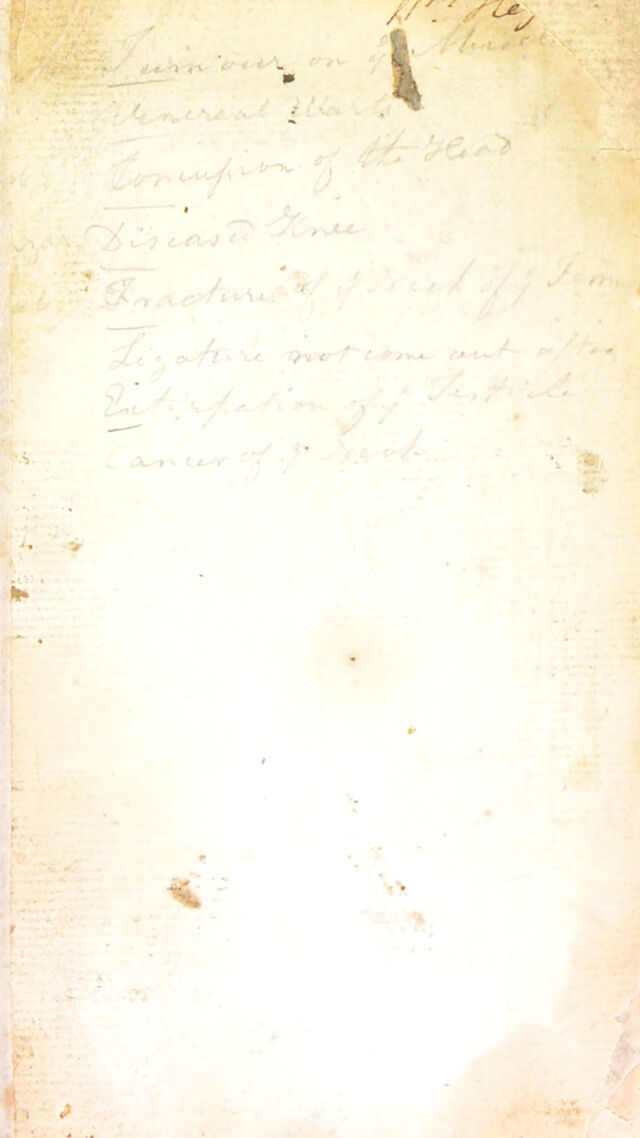 Tumour on y
Venereal Warts
Concussion of the Head
Diseased Knee
Fracture of y Neck of y
Ligature not come out after
Extirpation of y Testicle
Cancer of y